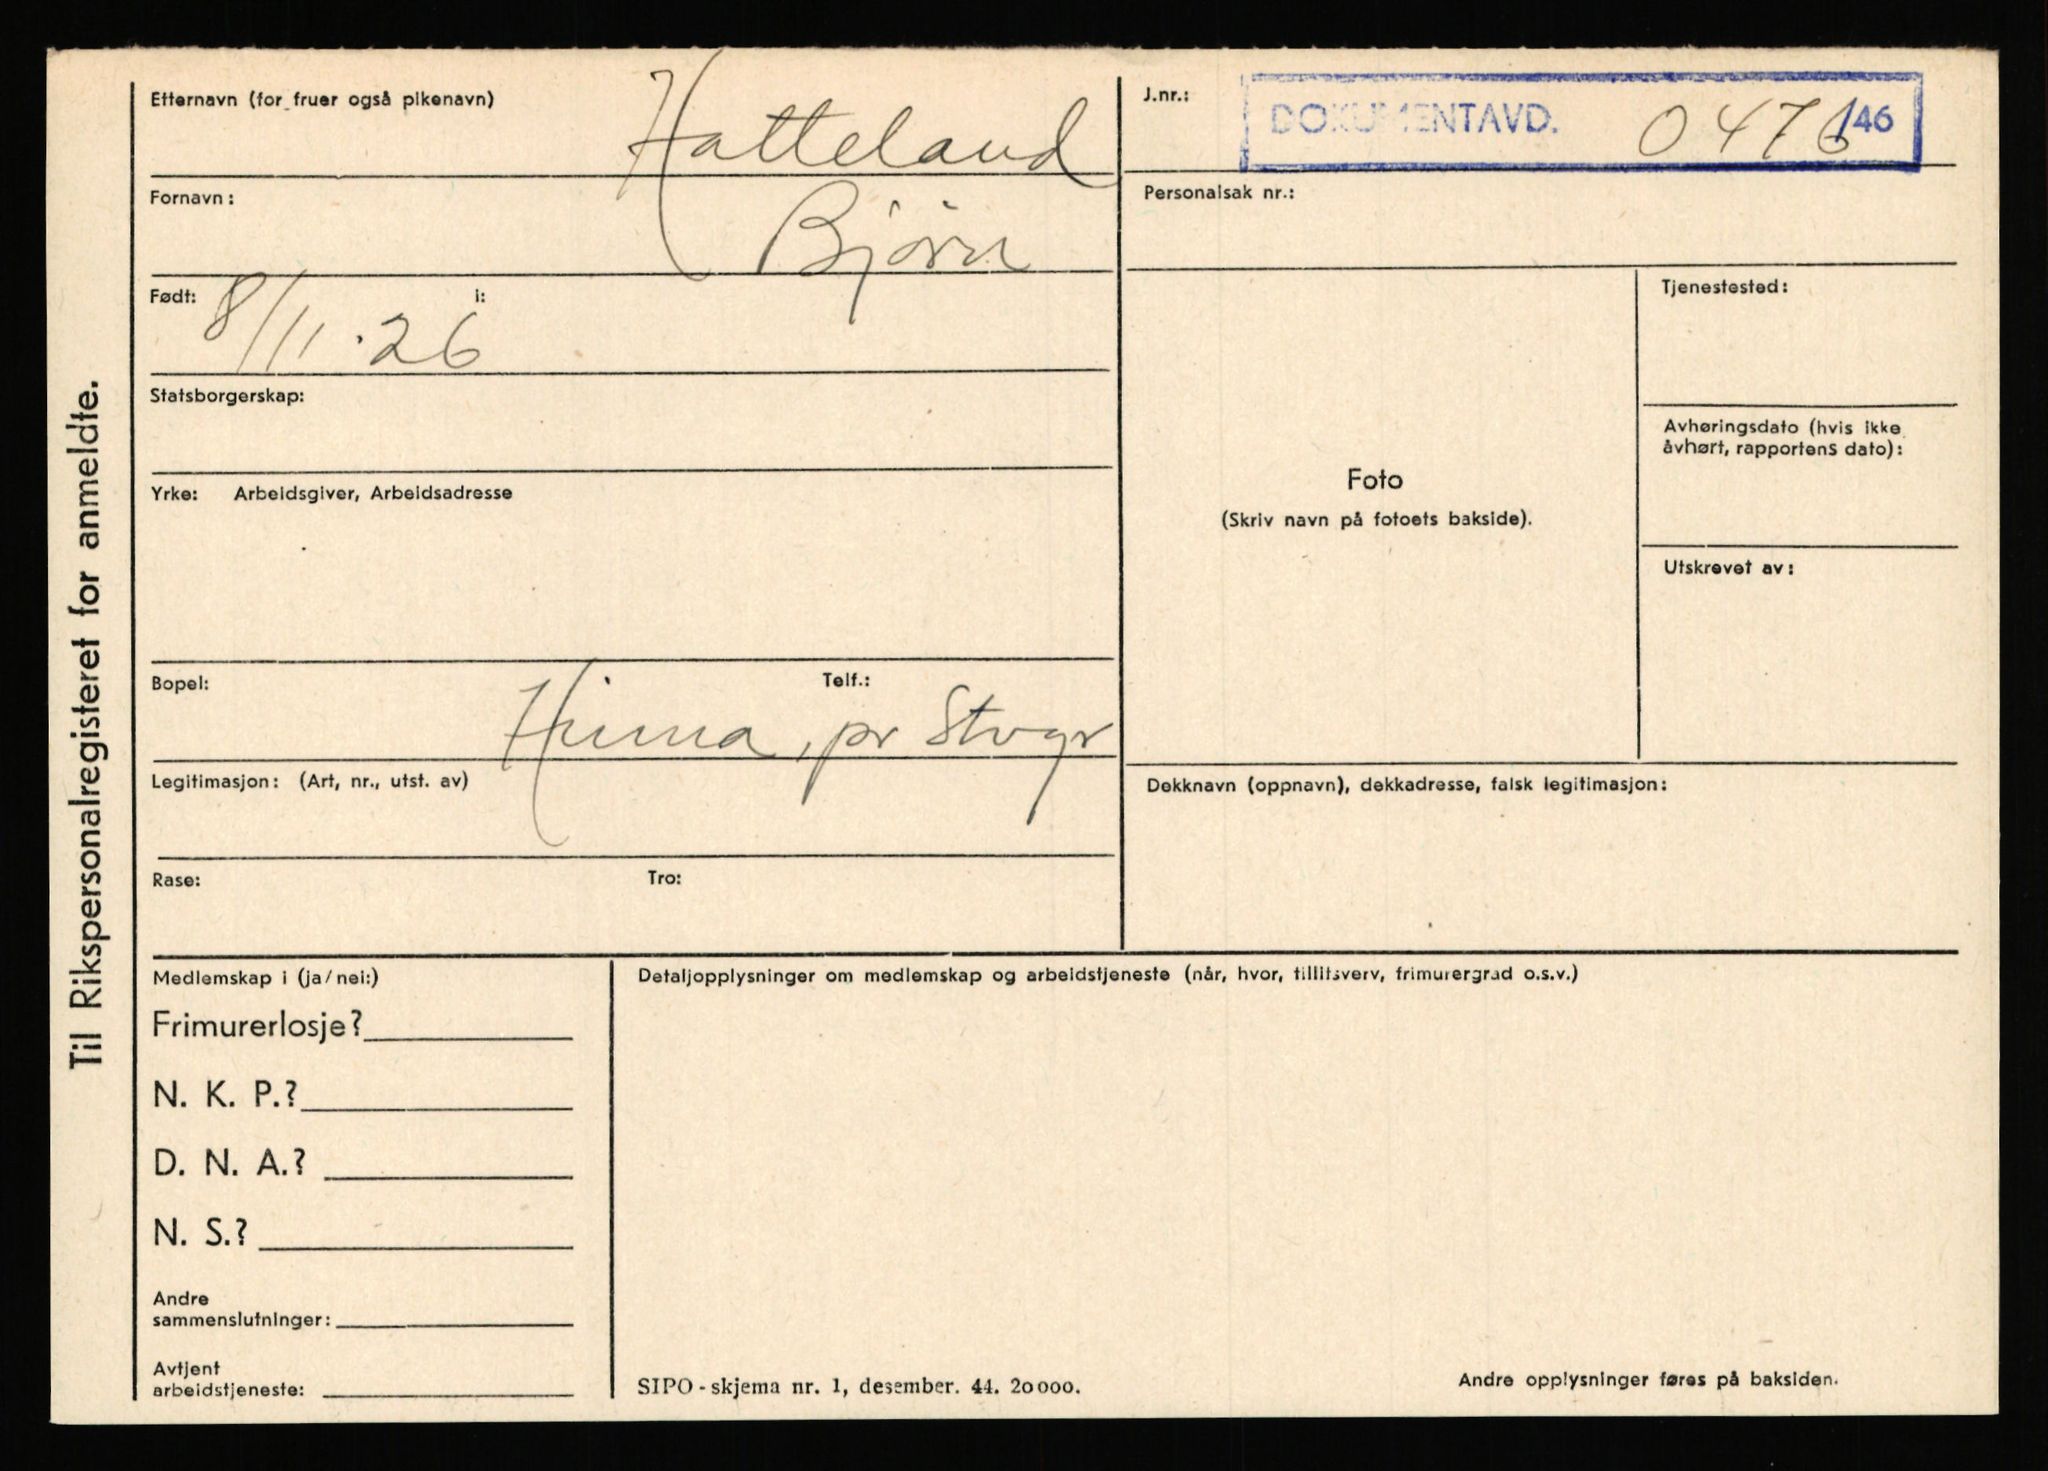 Til Rikspersonalregisteret for anmeldte.
Etternavn (for fruer også pikenavn)
Hatteland
Fornavn:
Bjørn
Født: 8/11.26 i:
Statsborgerskap:
Yrke: Arbeidsgiver, Arbeidsadresse
Bopel: Telf.:
Hinna, pr Stvgr
Legitimasjon: (Art, nr., utst. av)
Rase: Tro:
J.nr.: DOKUMENTAVD. 0476/46
Personalsak nr.:
Foto
(Skriv navn på fotoets bakside).
Tjenestested:
Avhøringsdato (hvis ikke
avhørt, rapportens dato):
Utskrevet av:
Dekknavn (oppnavn), dekkadresse, falsk legitimasjon:
Medlemskap i (ja/nei:)
Frimurerlosje?
N. K. P.?
D. N. A.?
N. S.?
Andre
sammenslutninger:
Avtjent
arbeidstjeneste:
Detaljopplysninger om medlemskap og arbeidstjeneste (når, hvor, tillitsverv, frimurergrad o.s.v.)
SIPO - skjema nr. 1, desember. 44. 20000.
Andre opplysninger føres på baksiden.